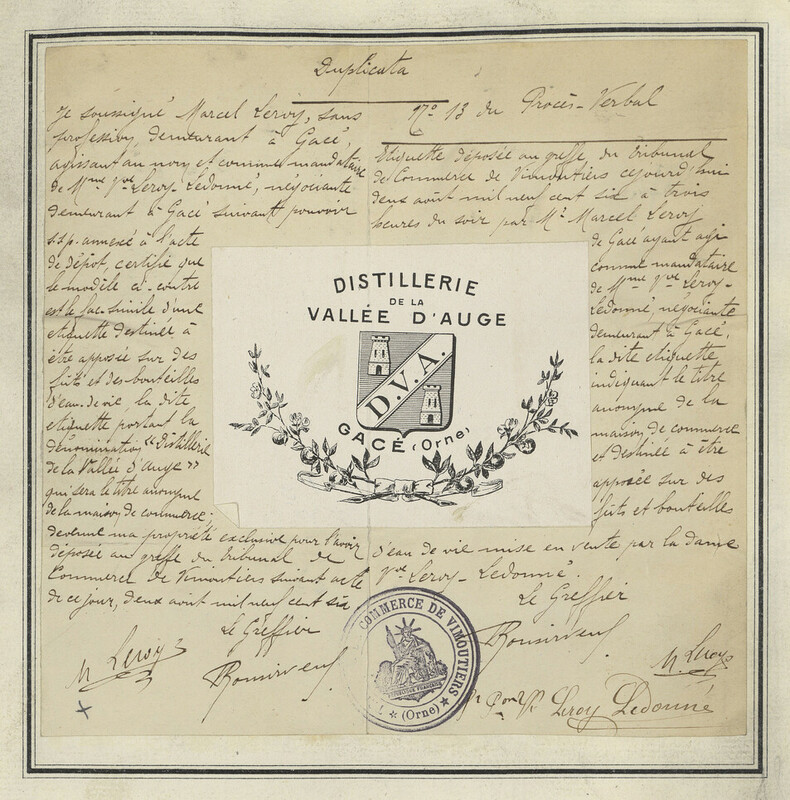 Duplicata
Je soussigné Marcel Leroy, sans
profession, demeurant à Gacé,
agissant au nom et comme mandataire
de Mme Vve Leroy-Ledonné, négociante
demeurant à Gacé suivant pouvoir
ssp. annexé à l'acte
de dépôt, certifie que
le modèle ci-contre
est le fac-simile d'une
etiquette destinée à
être apposée sur des
fûts et des bouteilles
d'eau-de-vie, la dite
etiquette portant la
dénomination "Distillerie
de la Vallée d'Auge"
qui sera le titre anonyme
de la maison de commerce;
devenue ma propriété exclusive pour l'avoir
déposée au greffe du tribunal de
Commerce de Vimoutiers suivant acte
de ce jour, deux août mil neuf cent six
Le Greffier
M. Leroy
No 13 du Procès-Verbal
Etiquette déposée au greffe du tribunal
de Commerce de Vimoutiers cejourd'hui
deux août mil neuf cent six à trois
heures du soir par Mr Marcel Leroy
de Gacé ayant agi
comme mandataire
de Mme Vve Leroy-
Ledonné, négociante
demeurant à Gacé,
la dite etiquette
indiquant le titre
anonyme de la
maison de commerce
et destinée à être
apposée sur des
fûts et bouteilles
d'eau de vie mise en vente par la dame
Vve Leroy-Ledonné.
Le Greffier
M. Leroy
Leroy Ledonné
DISTILLERIE
DE LA
VALLÉE D'AUGE
D.V.A.
GACÉ (Orne)
COMMERCE DE VIMOUTIERS
RÉPUBLIQUE FRANÇAISE
(Orne)